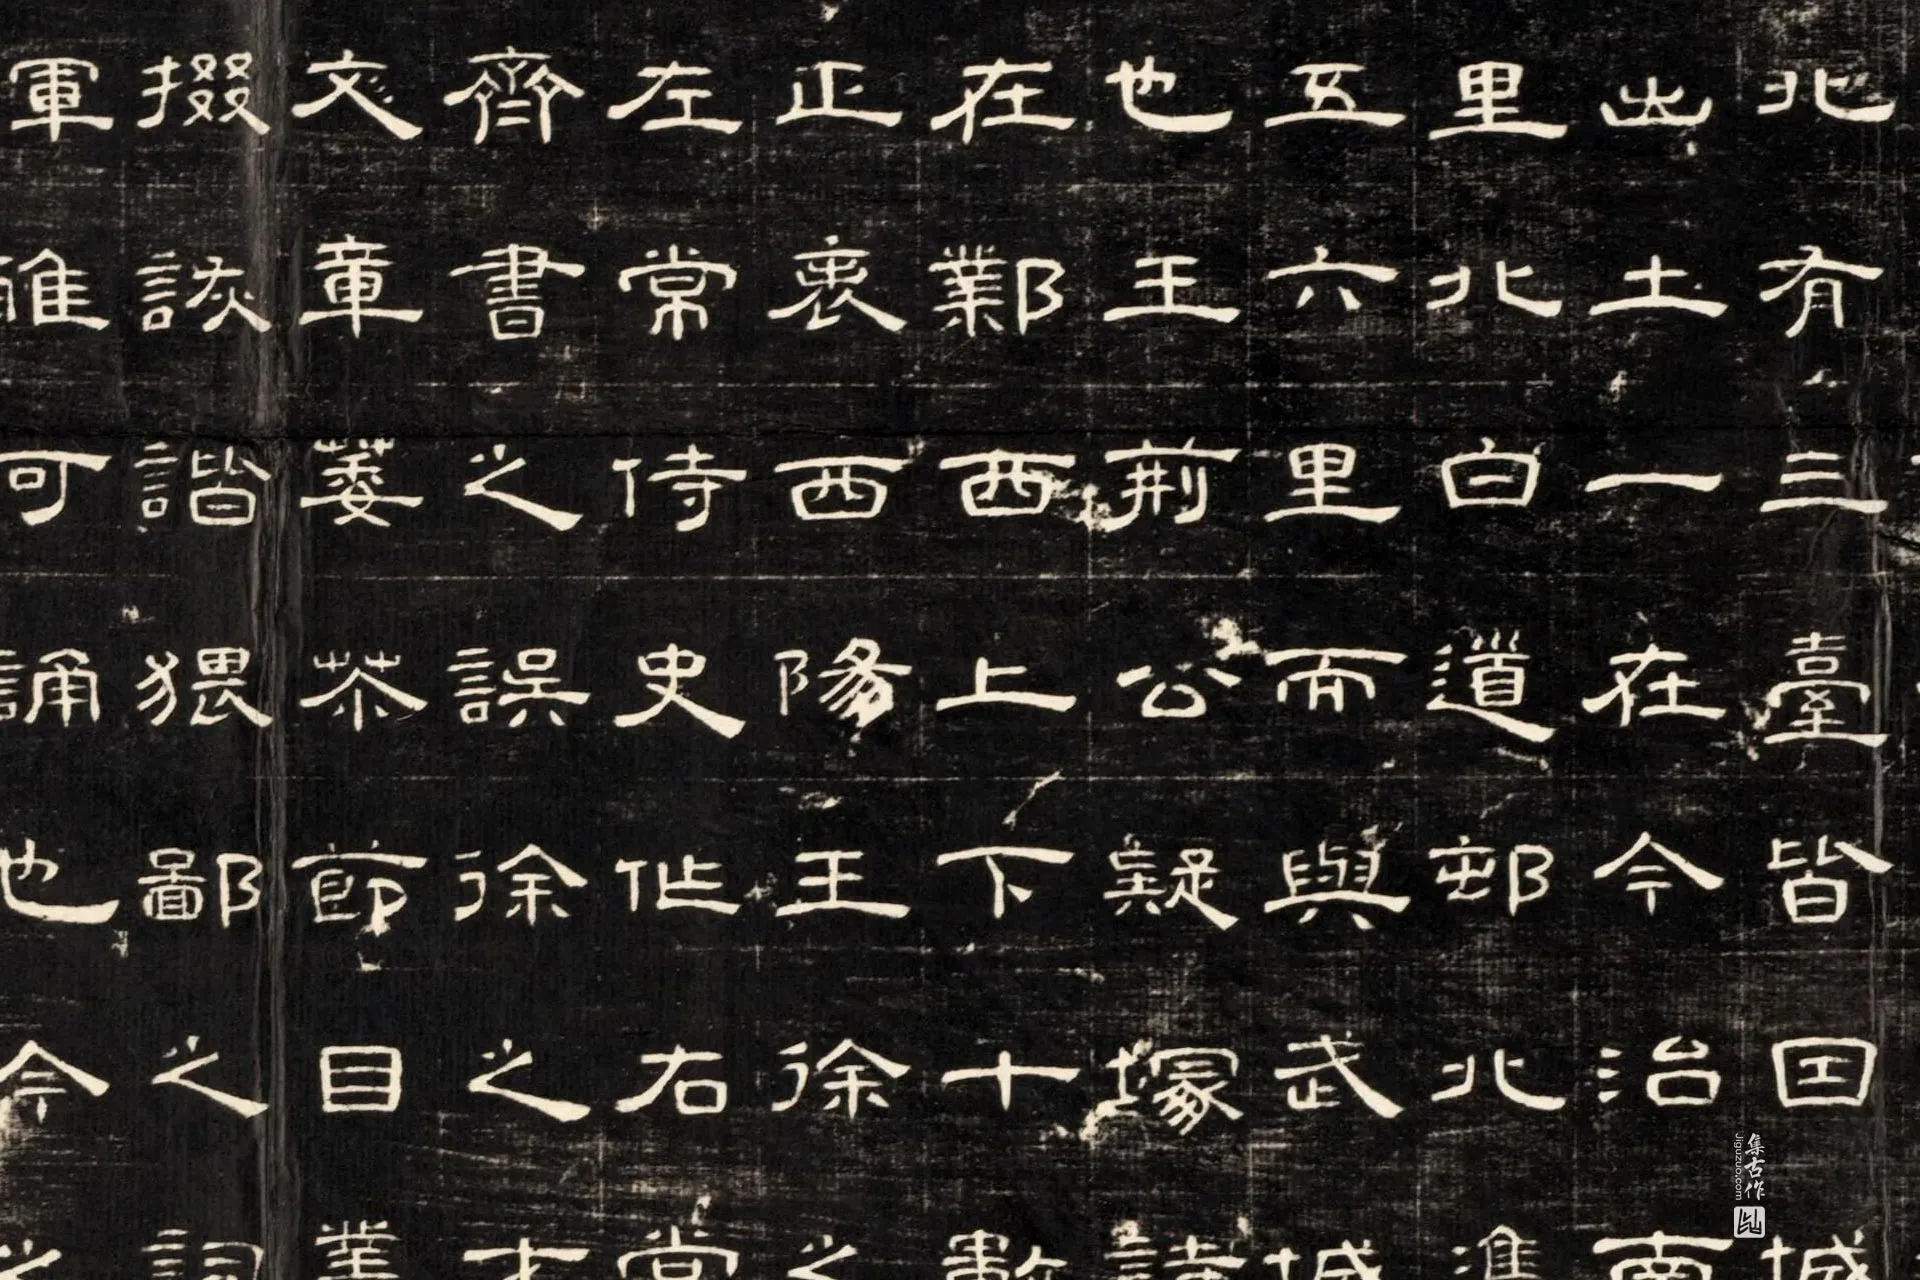 北有三臺皆囯城
出土一在今治南
里北白道邨北
五六里而與武城
也王荊公疑塚詩
在鄴西上下十數
正衷西王徐之
左常侍史作右常
齊書之誤徐之才
文章萎苶節目叢
掇詼諧猥鄙之詞
軍可誦也今之
集古作
Jiguzuo.com